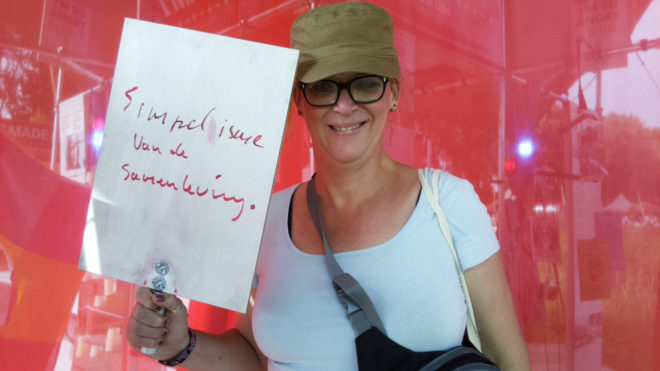 Simpelisme
Van de
Samenleving.
MADE